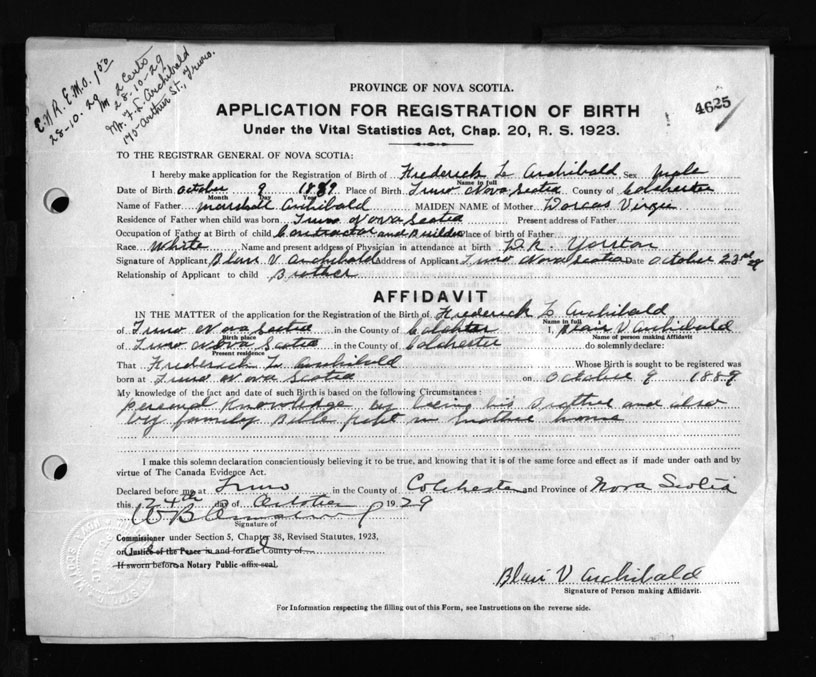 C.N.R. E.M.O. 1.50
28-10-29
2 Certs
28-10-29
Mr. F. L. Archibald
195 Arthur St., Truro.
4625
PROVINCE OF NOVA SCOTIA.
APPLICATION FOR REGISTRATION OF BIRTH
Under the Vital Statistics Act, Chap. 20, R. S. 1923.
TO THE REGISTRAR GENERAL OF NOVA SCOTIA:
I hereby make application for the Registration of Birth of Frederick L Archibald Sex Male
Name in full
Date of Birth October 9 1889 Place of Birth Truro Nova Scotia County of Colchester
Month Day Year
Name of Father Marshall Archibald MAIDEN NAME of Mother Dorcas Virgie
Residence of Father when child was born Truro Nova Scotia Present address of Father
Occupation of Father at Birth of child Contractor and Builder Place of birth of Father
Race White Name and present address of Physician in attendance at birth D.R. Yorston
Signature of Applicant Blair V Archibald Address of Applicant Truro Nova Scotia Date October 23rd 29
Relationship of Applicant to child Brother
AFFIDAVIT
IN THE MATTER of the application for the Registration of the Birth of Frederick L Archibald
Name in full
of Truro Nova Scotia in the County of Colchester I, Blair V Archibald
Birth place Name of person making Affidavit
of Truro Nova Scotia in the County of Colchester do solemnly declare:
Present residence
That Frederick L Archibald Whose Birth is sought to be registered was
born at Truro Nova Scotia on October 9 1889
My knowledge of the fact and date of such Birth is based on the following Circumstances:
personal Knowledge by being his Brother and also
by family Bible kept in mothers home
I make this solemn declaration conscientiously believing it to be true, and knowing that it is of the same force and effect as if made under oath and by
virtue of The Canada Evidence Act.
Declared before me at Truro in the County of Colchester and Province of Nova Scotia
this 24th day of October 1929
W B
Signature of
Commissioner under Section 5, Chapter 38, Revised Statutes, 1923,
or Justice of the Peace in and for the County of
If sworn before a Notary Public affix seal.
Blair V Archibald
Signature of Person making Affidavit.
For Information respecting the filling out of this Form, see Instructions on the reverse side.